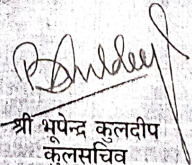 श्री भूपेन्द्र कुलदीप
कुलसचिव